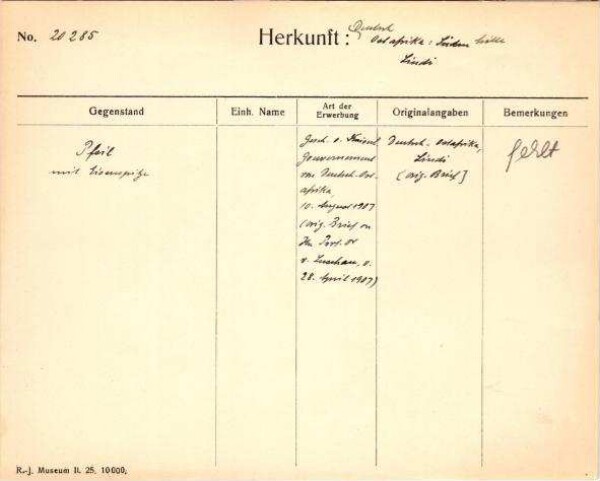 No. 20285
Herkunft: Deutsch
Ostafrika: Süden
Lindi
Gegenstand
Einh. Name
Art der
Erwerbung
Originalangaben
Bemerkungen
Pfeil
mit Eisenspitze
Gesch. v. Kaiserl.
Gouvernement
von Deutsch-Ost-
afrika,
10. August 1907
(orig. Brief an
Hn. Prof. Dr
v. Luschan, v.
28. April 1907)
Deutsch. Ostafrika,
Lindi
(orig. Brief]
fehlt
R.-J. Museum II. 25. 10000.